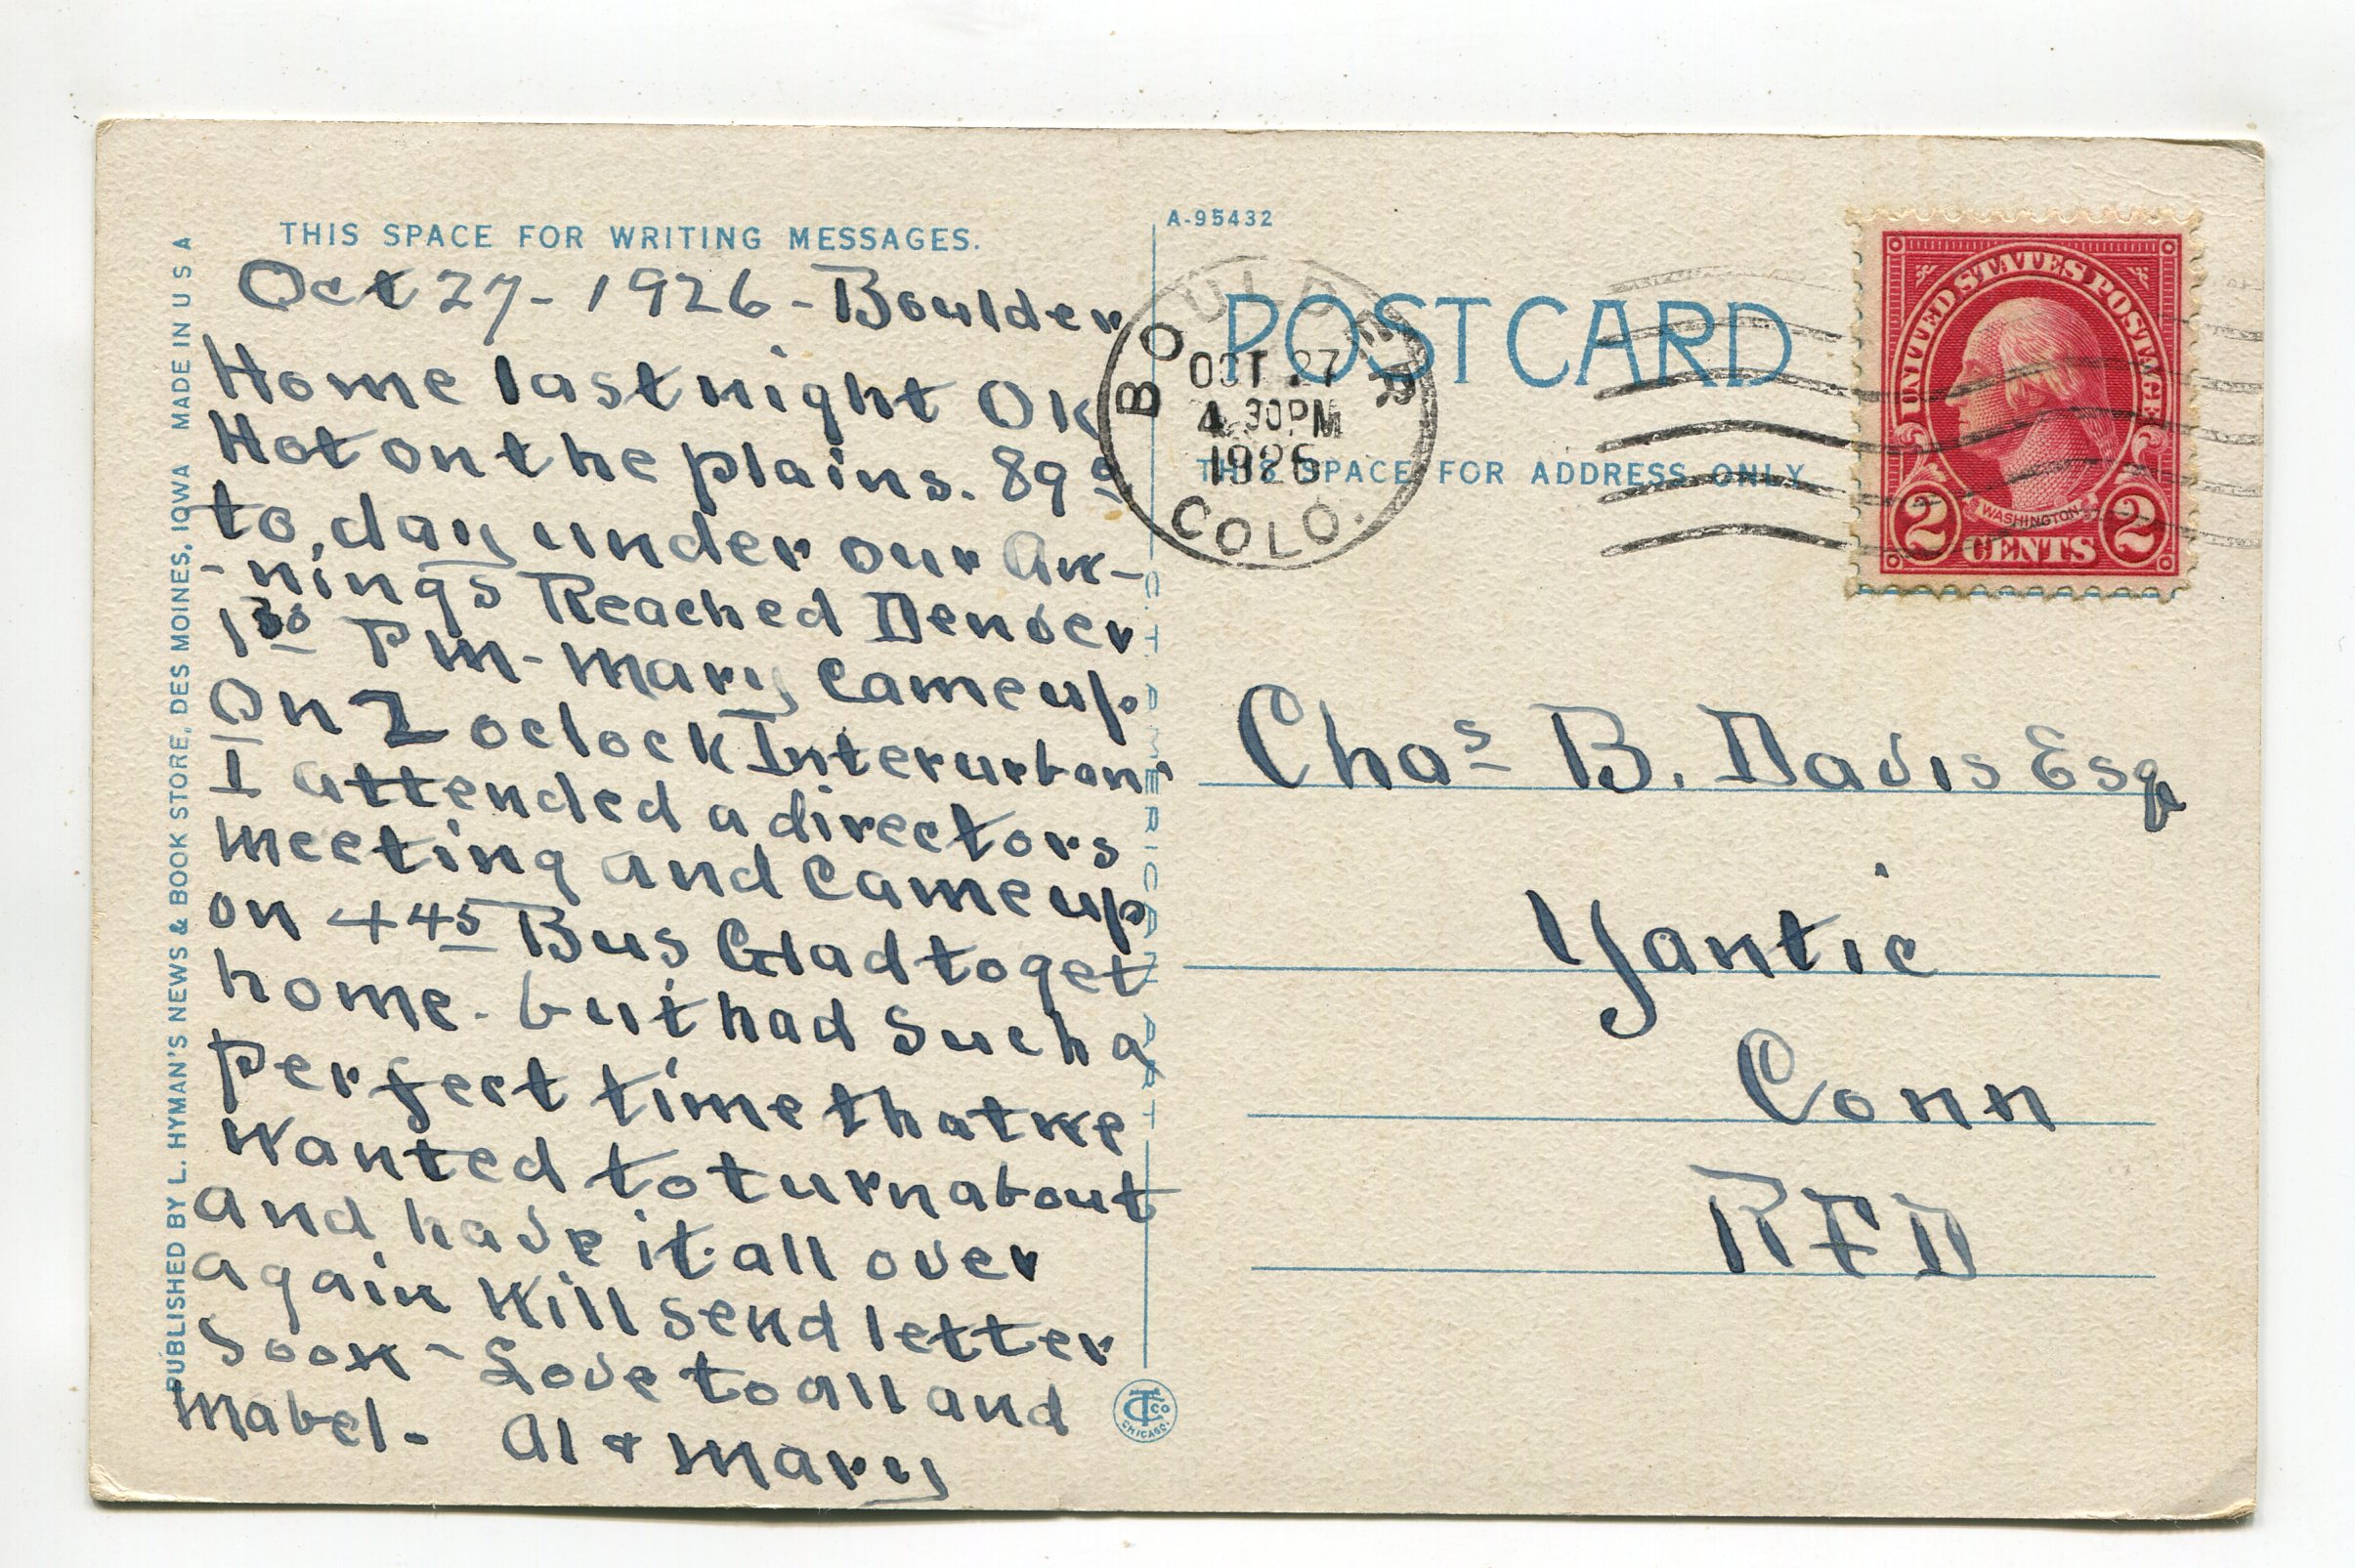 THIS SPACE FOR WRITING MESSAGES.
Oct 27 - 1926 - Boulder
Home last night OK
Hot on the plains. 89°
to, day under our Aw-
-nings Reached Denver
1 30 Pm - Mary Came up
On 2 oclock Interurban
I attended a directors
meeting and Came up
on 4 45 Bus Glad to get
home. but had Such a
Perfect time that we
Wanted to turn about
and have it all over
again Will send letter
Soon - Love to all and
Mabel - Al & Mary
PUBLISHED BY L. HYMAN'S NEWS & BOOK STORE, DES MOINES, IOWA MADE IN U S A
A-95432
POST CARD
THIS SPACE FOR ADDRESS ONLY.
BOULDER
OCT 27
4 30 PM
1926
COLO.
UNITED STATES POSTAGE
WASHINGTON
2 CENTS 2
C. T. AMERICAN ART
CT CO
CHICAGO.
Chas B. Davis Esq
Yantic
Conn
RFD